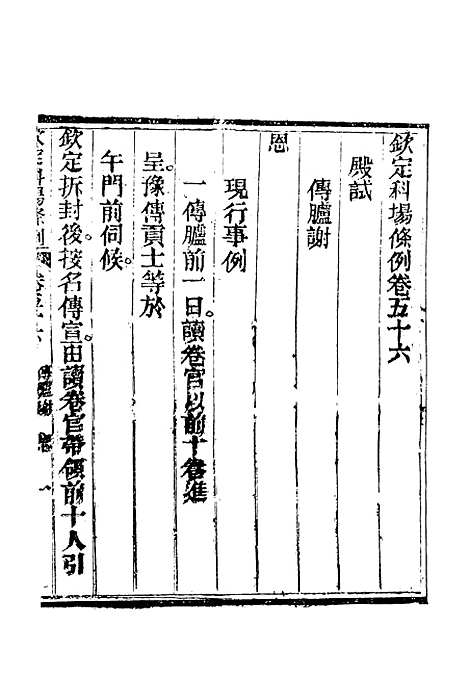 欽定科場條例卷五十六
殿試
傳臚謝
恩
現行事例
一傳臚前一日讀卷官以前十卷進
呈豫傳貢士等於
午門前伺候
欽定拆封後按名傳宣由讀卷官帶領前十人引
欽定科場條例 卷五十六 傳臚謝恩 一